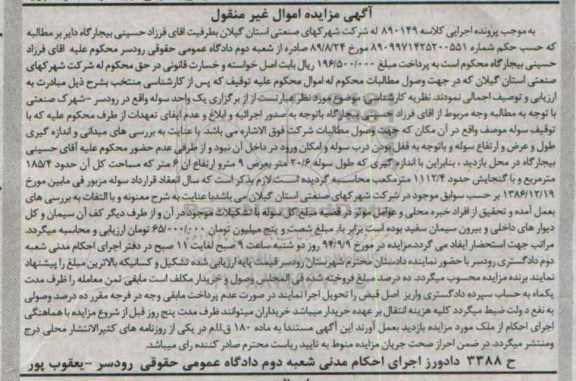 آگهی مزایده اموال غیر منقول
به موجب پرونده اجرایی کلاسه ۸۹۰۱۴۹ له شرکت شهرکهای صنعتی استان گیلان بطرفیت اقای فرزاد حسینی بیجارگاه دایر بر مطالبه
که حسب حکم شماره ۸۹۰۹۹۷۱۴۲۵۲۰۰۵۵۱ مورخ ۸۹/۸/۲۴ صادره از شعبه دوم دادگاه عمومی حقوقی رودسر محکوم علیه اقای فرزاد
حسینی بیجارگاه محکوم است به پرداخت مبلغ ۱۹۶/۵۰۰/۰۰۰ ریال بابت اصل خواسته و خسارت قانونی در حق محکوم له شرکت شهرکهای
صنعتی استان گیلان که در جهت وصول مطالبات محکوم له اموال محکوم علیه توقیف که پس از کارشناسی منتخب بشرح ذیل مبادرت به
ارزیابی و توصیف اجمالی نمودند. نظریه کارشناسی: موضوع مورد نظر عبارتست از از برگزاری یک واحد سوله واقع در رودسر -شهرک صنعتی
با توجه به مطالبه وجه مربوط از اقای فرزاد حسینی بیجارگاه باتوجه به صدور اجرائیه و ابلاغ و عدم ایفای تعهدات از طرف محکوم علیه که با
توقیف سوله موصف واقع در آن مکان که جهت وصول مطالبات شرکت فوق الاشاره می باشد. با عنایت به بررسی های میدانی و اندازه گیری
طول و عرض و ارتفاع سوله و باتوجه به قفل بودن درب سوله و امکان ورود در داخل آن نبود و از طرفی عدم حضور محکوم علیه آقای حسینی
بیجارگاه در محل بازدید ، بنابراین با اندازه گیری که طول سوله ۲۰/۶ متر بعرض ۹ مترو ارتفاع ان ۶ متر که مساحت کل آن حدود ۱۸۵/۴
مترمربع و با گنجایش حدود ۱۱۱۲/۴ مترمکعب محاسبه گردیده است لازم بذکر است که سال انعقاد قرارداد سوله مزبور فی مابین مورخ
۱۳۸۶/۱۲/۱۹ بر حسب سوابق موجود در شرکت شهرکهای صنعتی استان گیلان می باشدبا عنایت به شرح معنونه و با التفات به بررسی های
بعمل آمده و تحقیق از افراد خبره محلی و عوامل موثر در قضیه مبلغ کل سوله با تشکیلات موجود در آن و از طرف دیگر کف آن سیمان و کل
دیوار های داخلی و بیرون سیمان سفید بوده است برابر بار مبلغ شصت و پنج میلیون تومان ۶۵/۰۰۰/۰۰۰ تومان ارزیابی و محاسبه میگردد.
مراتب جهت استحضار ایفاد می گردد.مزایده در مورخ ۹۴/۹/۹ روز دو شنبه ساعت ۹ صبح لغایت ۱۱ صبح در دفتر اجرای احکام مدنی شعبه
دوم دادگستری رودسر با حضور نماینده دادستان محترم شهرستان رودسر قیمت پایه ارزیابی شده تشکیل و کسانیکه بالاترین مبلغ را پیشنهاد
نمایند برنده مزایده محسوب میگردد. ده درصد مبلغ فروخته شده فی المجلس وصول و خریدار مکلف است مابقی ثمن معامله را ظرف مدت
یکماه به حساب سپرده دادگستری واریز اصل قبض را تحویل اجرا نمایند در صورت عدم پرداخت مابقی وجه در فرجه مقرر ده درصد وصولی
به نفع دولت ضبط میگردد کلیه هزینه انتقال بر عهده خریدار میباشد خریداران میتوانند ظرف مدت پنج روز قبل از شروع مزایده با هماهنگی
اجرای احکام از ملک مورد مزایده بازدید بعمل آورند این آگهی مستندا به ماده ۱۸۰ ق.ا.م در یکی از روزنامه های کثیرالانتشار محلی درج
ومنتشر میگردد. در ضمن احراز صحت جریان مزایده منوط به تایید ریاست محترم صادر کننده رای میباشد.
ح ۳۳۸۸ دادورز اجرای احکام مدنی شعبه دوم دادگاه عمومی حقوقی رودسر -یعقوب پور